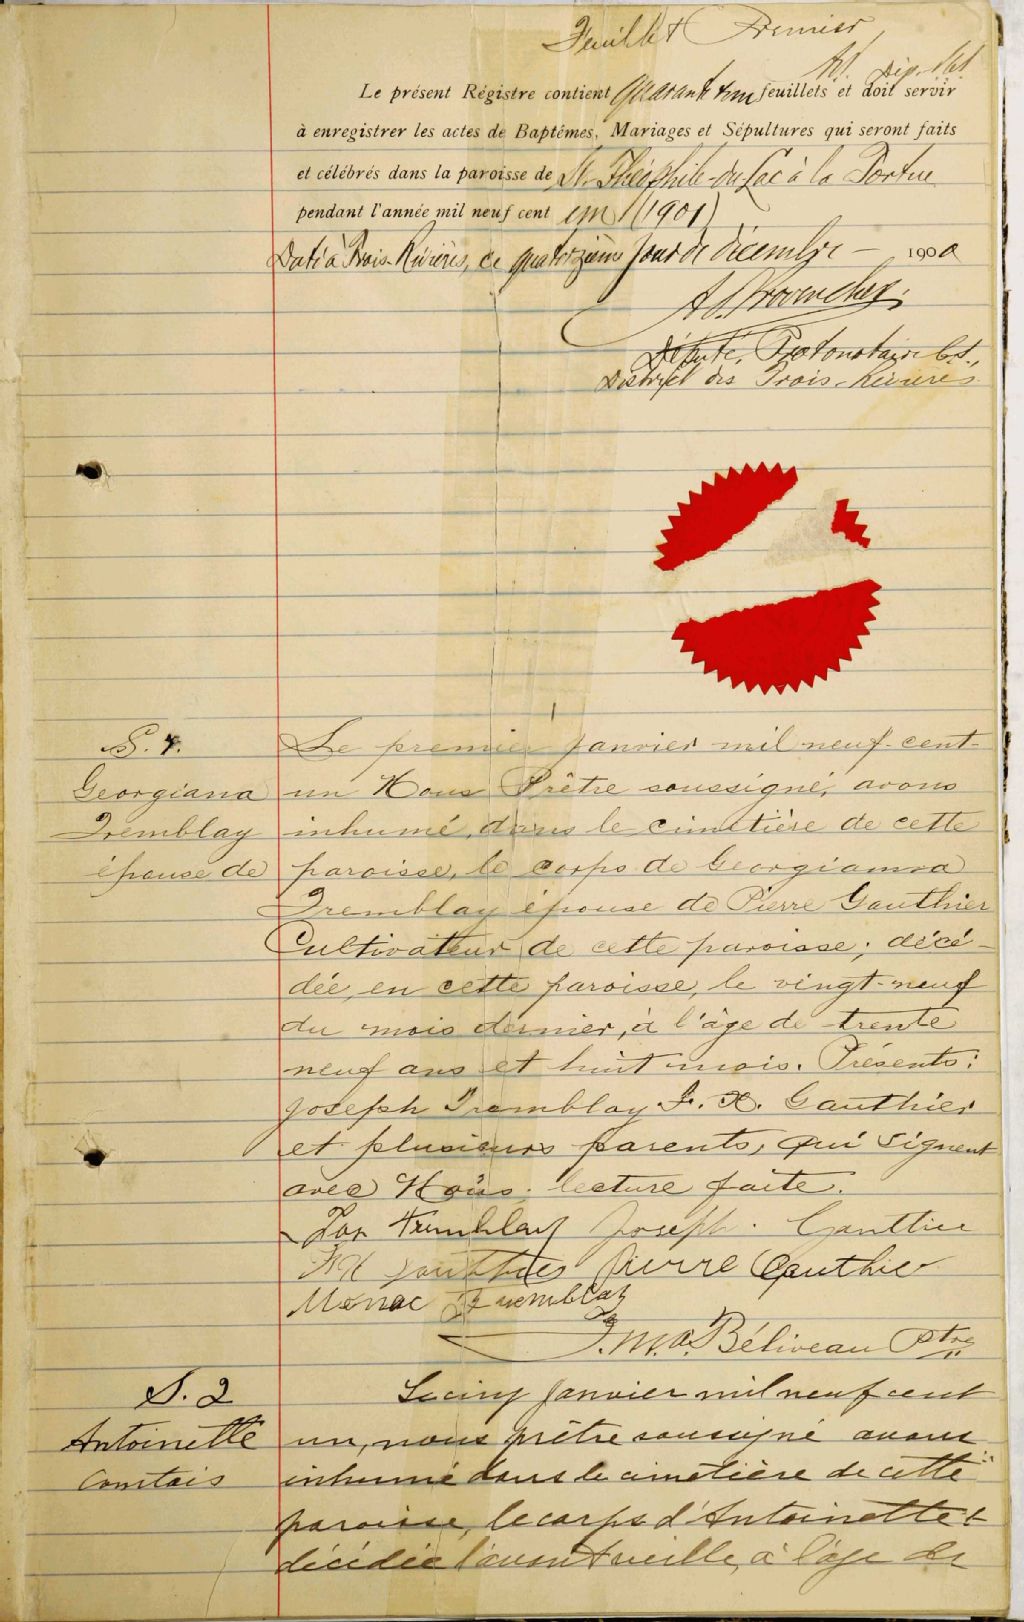 Feuillet Premier
Le présent Régistre contient quarante feuillets et doit servir
à enregistrer les actes de Baptêmes, Mariages et Sépultures qui seront faits
et célébrés dans la paroisse de St. Théophile-du-Lac à la Tortue
pendant l'année mil neuf cent un (1901)
Daté à Trois-Rivières, ce quatorzième jour de décembre — 1900
Député, Protonotaire C.S.,
District des Trois-Rivières.
S. 1.
Georgiana
Tremblay
épouse de
Le premier janvier mil neuf-cent-
un Nous Prêtre soussigné, avons
inhumé, dans le cimetière de cette
paroisse, le corps de Georgianna
Tremblay épouse de Pierre Gauthier
Cultivateur de cette paroisse; décé-
dée, en cette paroisse, le vingt-neuf
du mois dernier, à l'âge de trente
neuf ans et huit mois. Présents:
Joseph Tremblay F. X. Gauthier
et plusieurs parents, qui signent
avec Nous. lecture faite.
Jos Tremblay Joseph. Gauthier
F X Gauthier Pierre Gauthier
Tremblay
J. M. A. Béliveau Ptre
S. 2
Antoinette
Comtois
Le cinq janvier mil neuf cent
un, nous prêtre soussigné avons
inhumé dans le cimetière de cette
paroisse, le corps d'Antoinette
décédée l'avant veille, à l'âge de